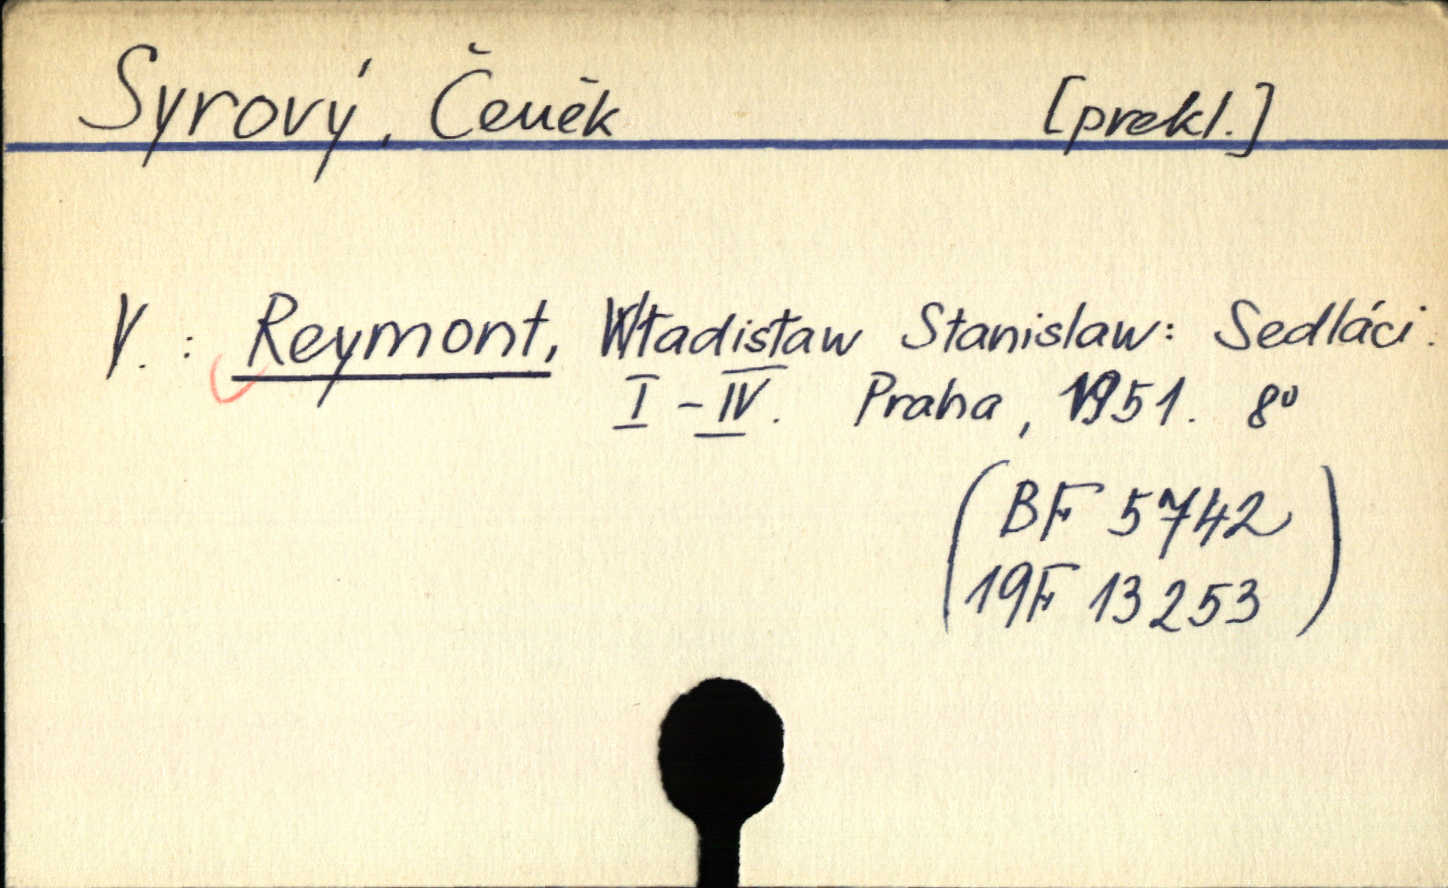 Syrový, Čeněk [prekl.]
V. : Reymont, Władisław Stanislaw: Sedláci.
I - IV. Praha, 1951. 8°
(BF 5742
19F 13253)